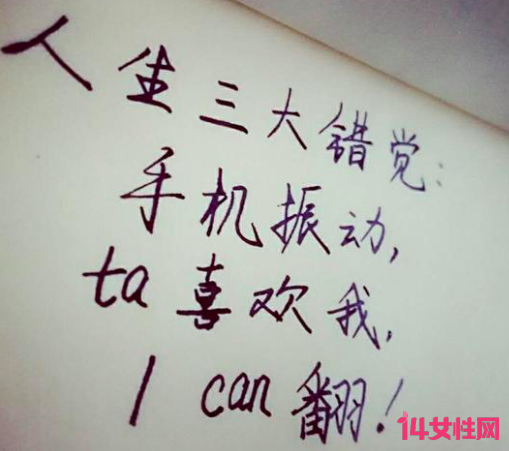 人生三大错觉：
手机振动,
ta喜欢我,
I can翻!
14女性网